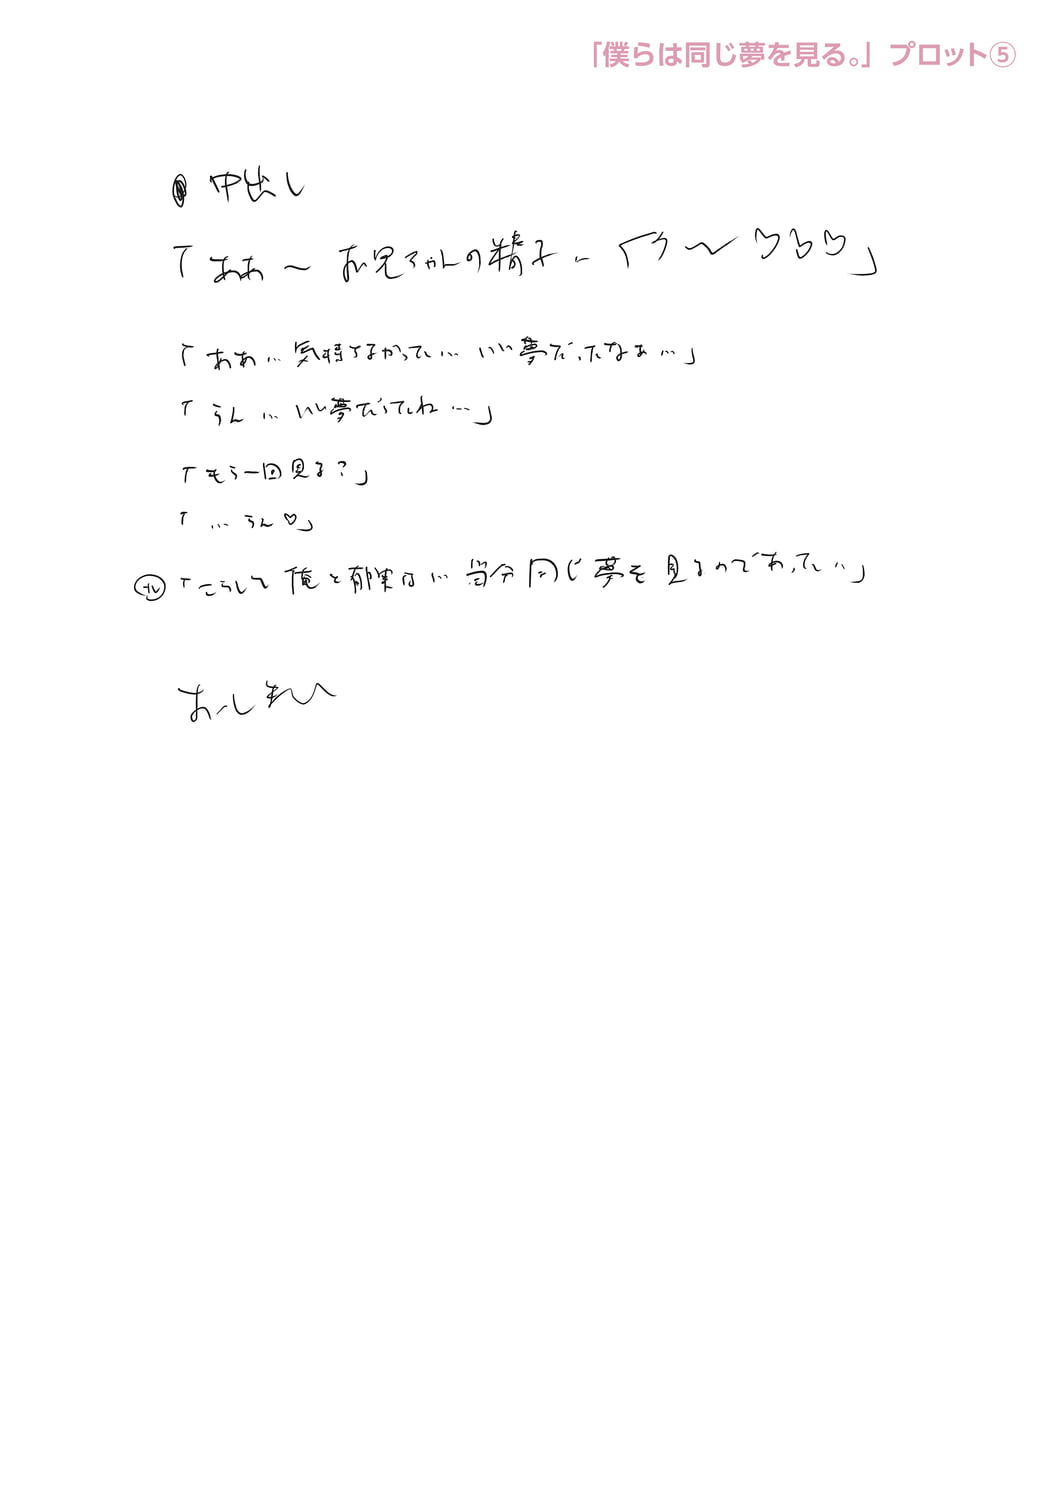 「僕らは同じ夢を見る。」プロット⑤
中出し
「ああ〜お兄ちゃんの精子… 〜♡♡♡」
「ああ…気持ちよかった…いい夢だったなぁ…」
「うん…いい夢だったね…」
「もう一回見る?」
「…うん♡」
「こうして俺と郁実は…当分同じ夢を見るのであった…」
おしまい